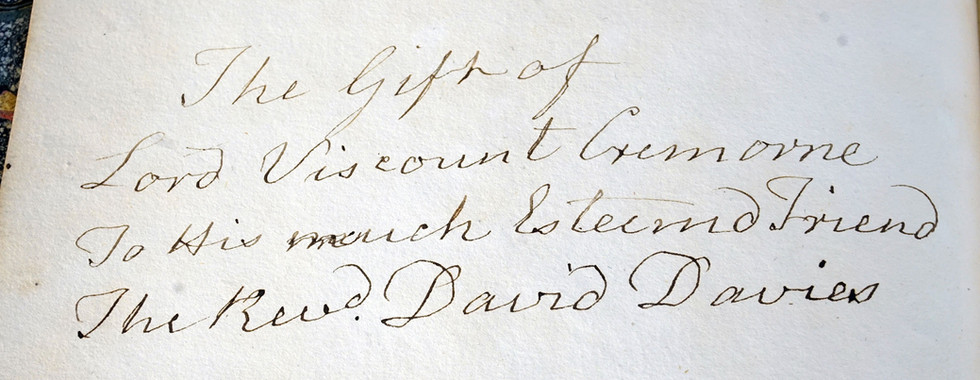 The Gift of
Lord Viscount Cremorne
To His much Esteemd Friend
The Revd. David Davies